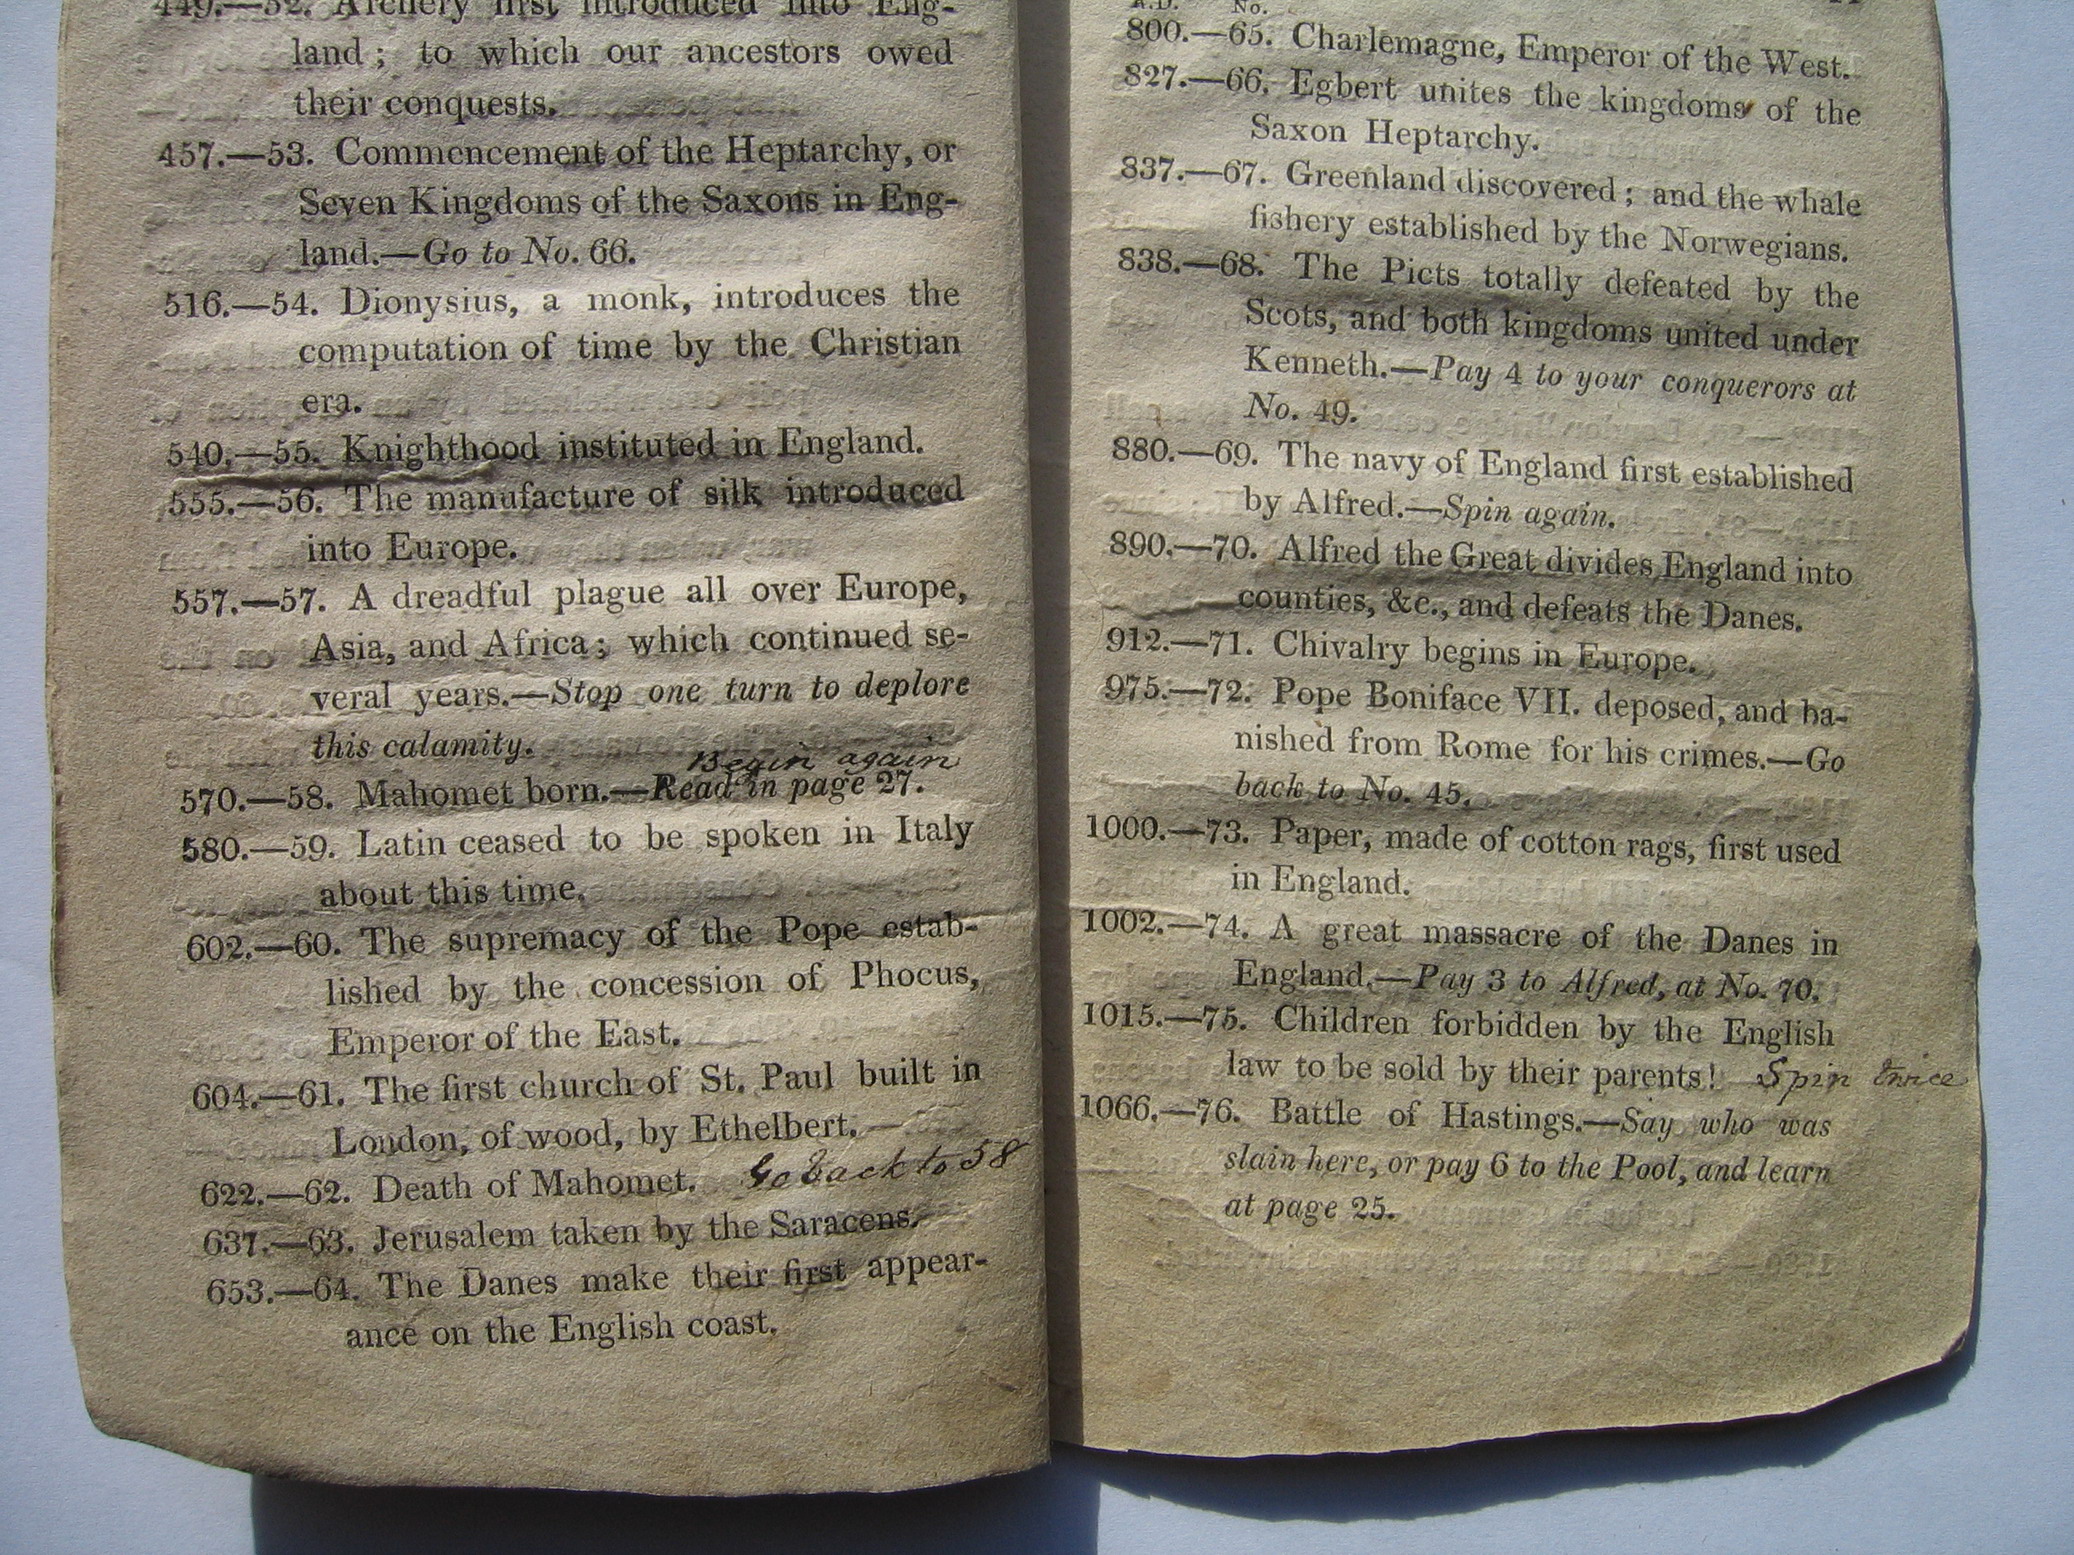 449.—52. Archery first introduced into Eng-
land; to which our ancestors owed
their conquests.
457.—53. Commencement of the Heptarchy, or
Seven Kingdoms of the Saxons in Eng-
land.—Go to No. 66.
516.—54. Dionysius, a monk, introduces the
computation of time by the Christian
era.
540.—55. Knighthood instituted in England.
555.—56. The manufacture of silk introduced
into Europe.
557.—57. A dreadful plague all over Europe,
Asia, and Africa; which continued se-
veral years.—Stop one turn to deplore
this calamity.
Begin again
570.—58. Mahomet born.—Read in page 27.
580.—59. Latin ceased to be spoken in Italy
about this time.
602.—60. The supremacy of the Pope estab-
lished by the concession of Phocus,
Emperor of the East.
604.—61. The first church of St. Paul built in
London, of wood, by Ethelbert.—
622.—62. Death of Mahomet. Go back to 58
637.—63. Jerusalem taken by the Saracens.
653.—64. The Danes make their first appear-
ance on the English coast.
A.D. No.
800.—65. Charlemagne, Emperor of the West.
827.—66. Egbert unites the kingdoms of the
Saxon Heptarchy.
837.—67. Greenland discovered; and the whale
fishery established by the Norwegians.
838.—68. The Picts totally defeated by the
Scots, and both kingdoms united under
Kenneth.—Pay 4 to your conquerors at
No. 49.
880.—69. The navy of England first established
by Alfred.—Spin again.
890.—70. Alfred the Great divides England into
counties, &c., and defeats the Danes.
912.—71. Chivalry begins in Europe.
975.—72. Pope Boniface VII. deposed, and ba-
nished from Rome for his crimes.—Go
back to No. 45.
1000.—73. Paper, made of cotton rags, first used
in England.
1002.—74. A great massacre of the Danes in
England.—Pay 3 to Alfred, at No. 70.
1015.—75. Children forbidden by the English
law to be sold by their parents! Spin twice
1066.—76. Battle of Hastings.—Say who was
slain here, or pay 6 to the Pool, and learn
at page 25.